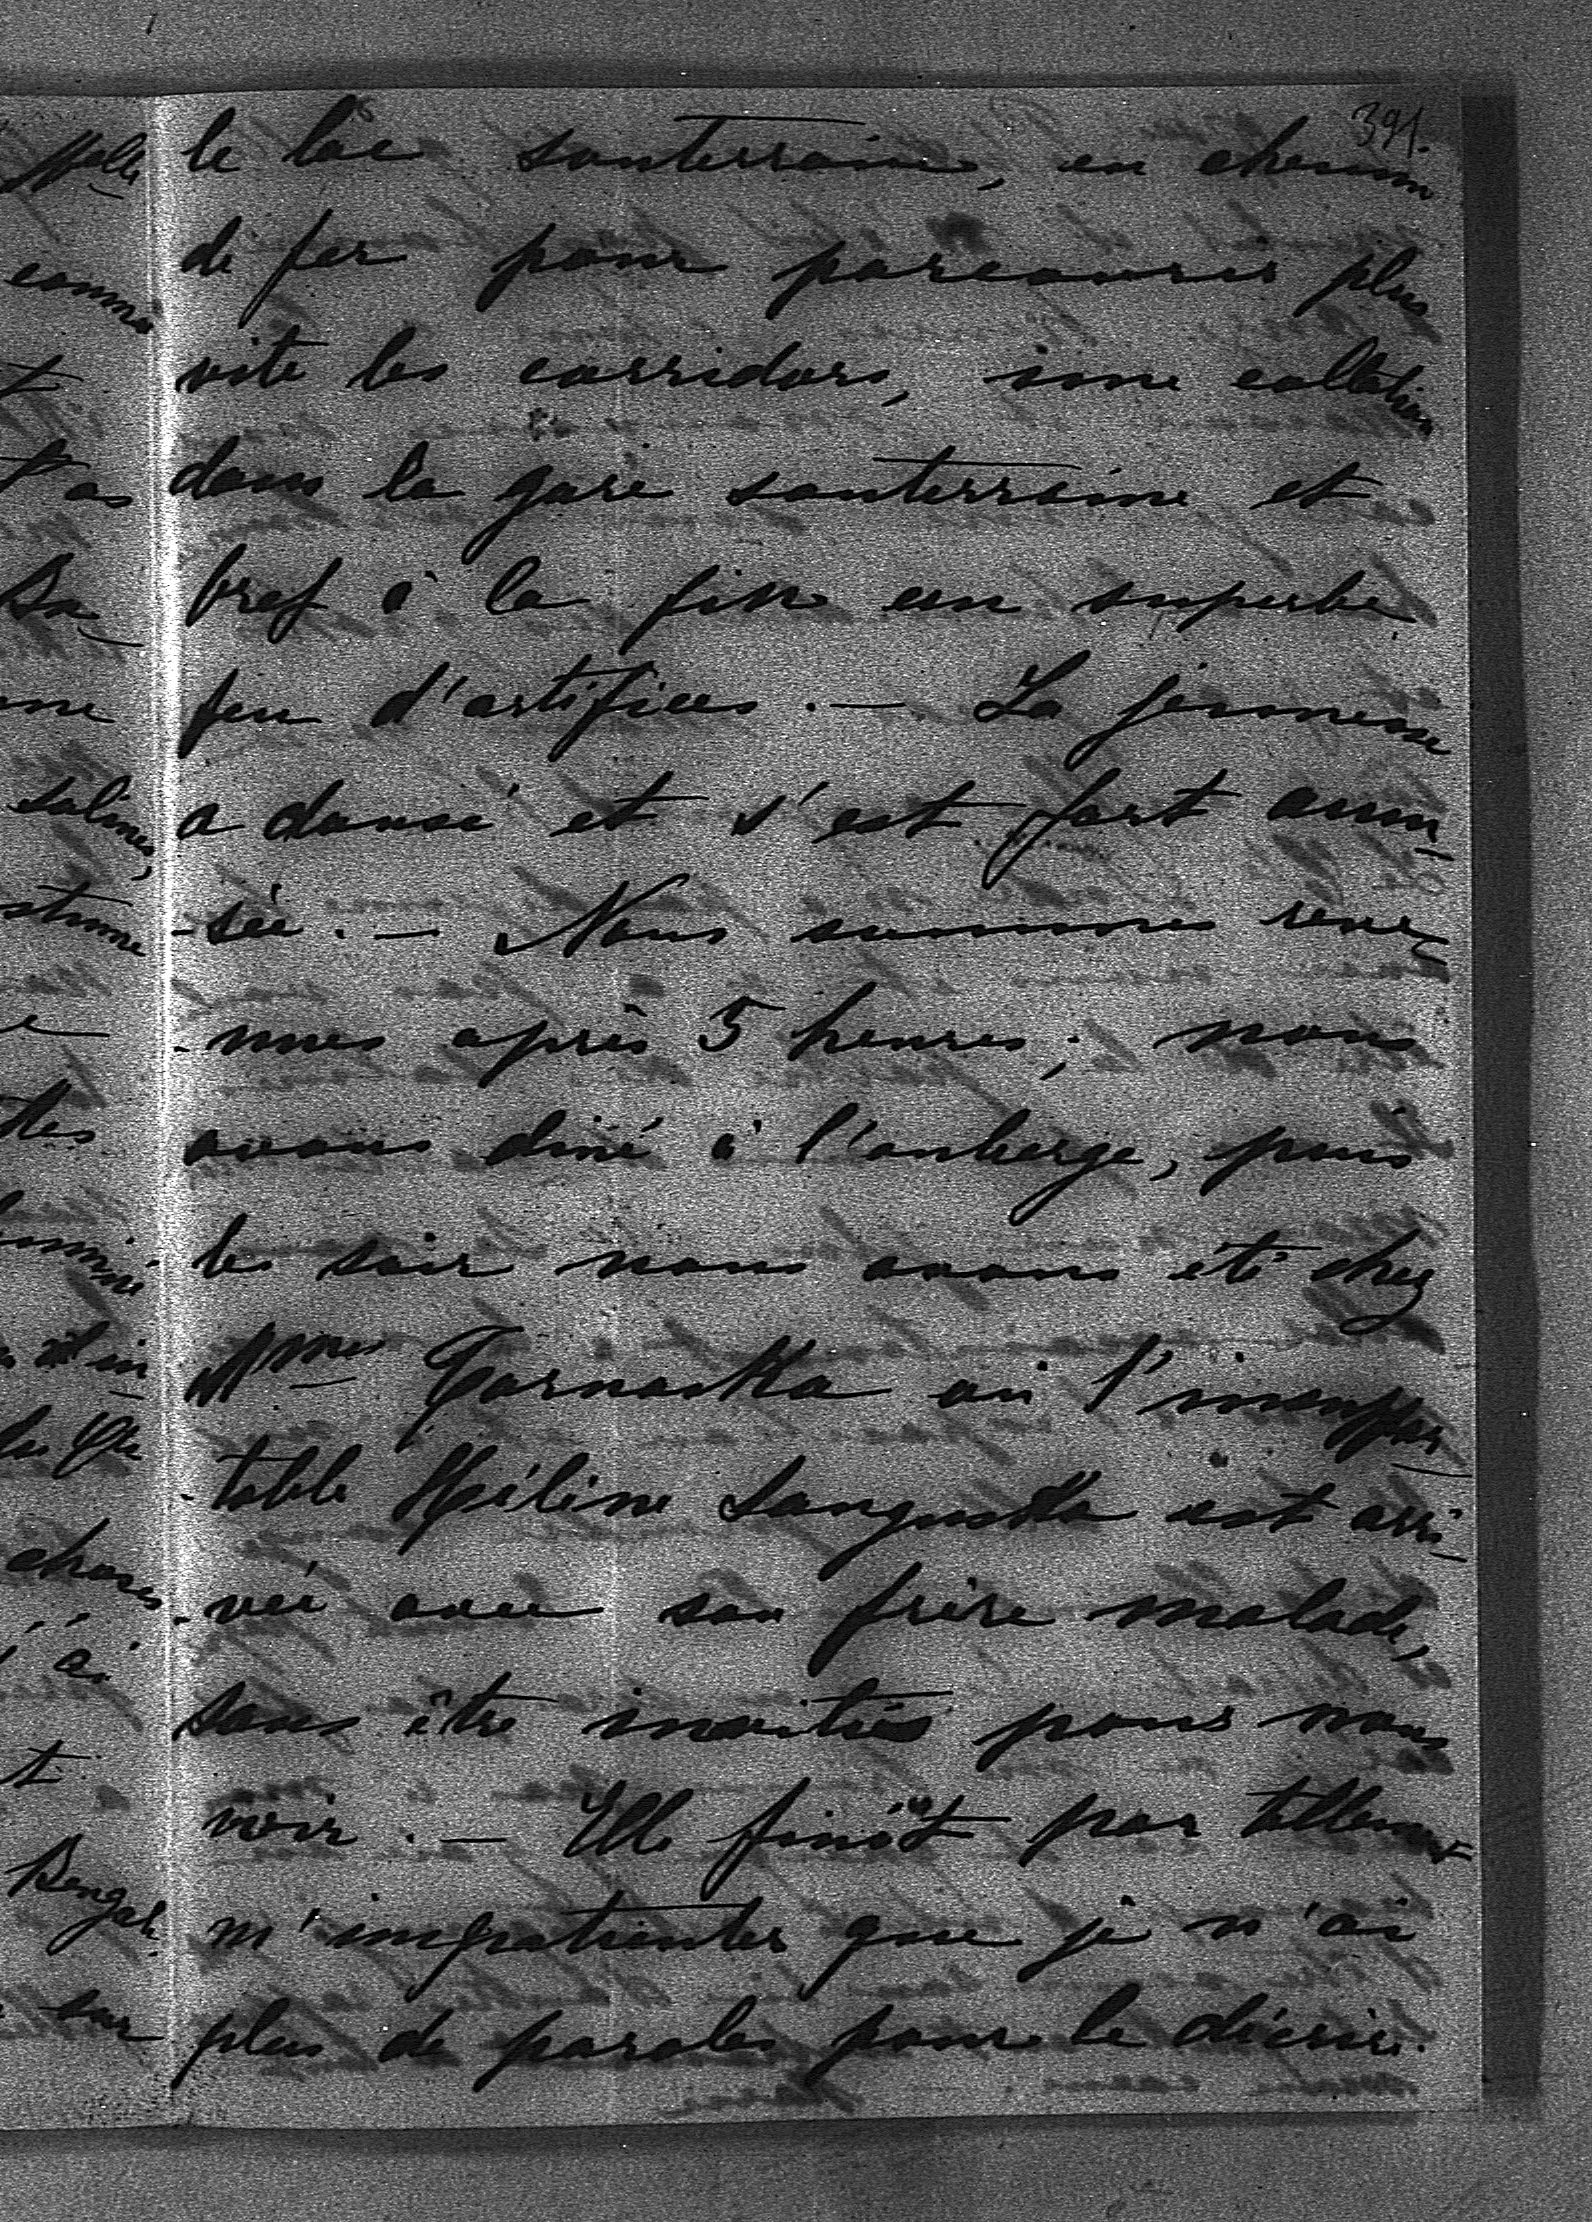 391.
le lac souterrain, en chemin
de fer pour parcourir plus
vite les corridors, une collation
dans la gare souterraine et
bref à la fin un superbe
feu d'artifices. — La jeunesse
a dansé et s'est fort amu-
-sée. — Nous sommes reve-
-nues après 5 heures; nous
avons diné à l'auberge, puis
le soir nous avons été chez
Mmes Tarnoska où l'insuppor-
-table Hélène Sanguska est arri-
-vée avec son frère malade,
sans être invités pour nous
voir. — Elle finit par tellement
m'impatienter que je n'ai
plus de paroles pour le décrire.